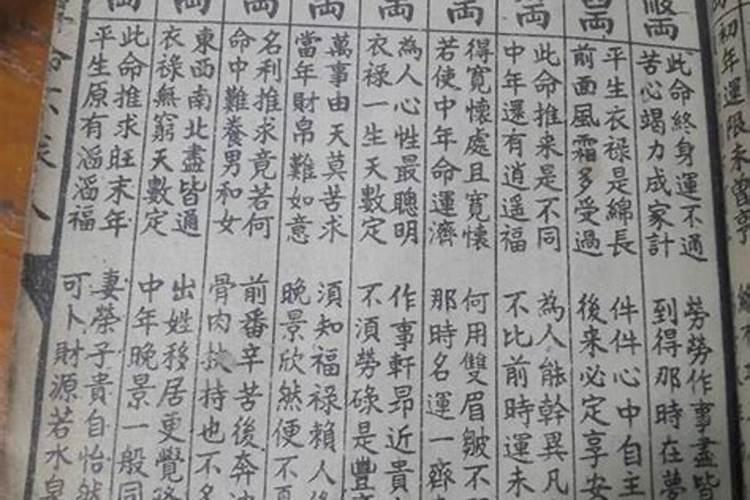 初年運限未曾亨
両
此命終身運不通 勞勞作事盡皆
苦心竭力成家計 到得那時在夢
両
平生衣祿是綿長 件件心中自主
前面風霜多受過 後来必定享安
両
此命推来是不同 為人能幹異凡
中年還有逍遥福 不比前時運未
両
得寬懷處且寬懷 何用雙眉皺不
若使中年命運濟 那時名運一齊
両
為人心性最聰明 作事軒昂近貴
衣祿一生天數定 不須勞碌是豐
両
萬事由天莫苦求 須知福祿賴人
當年財帛難如意 晚景欣然便不
両
名利推求竟若何 前番辛苦後奔
命中難養男和女 骨肉扶持也不
両
東西南北盡皆通 出姓移居更覺
衣祿無窮天數定 中年晚景一般同
両
此命推求旺末年 妻榮子貴自怡然
平生原有滔滔福 可卜財源若水泉